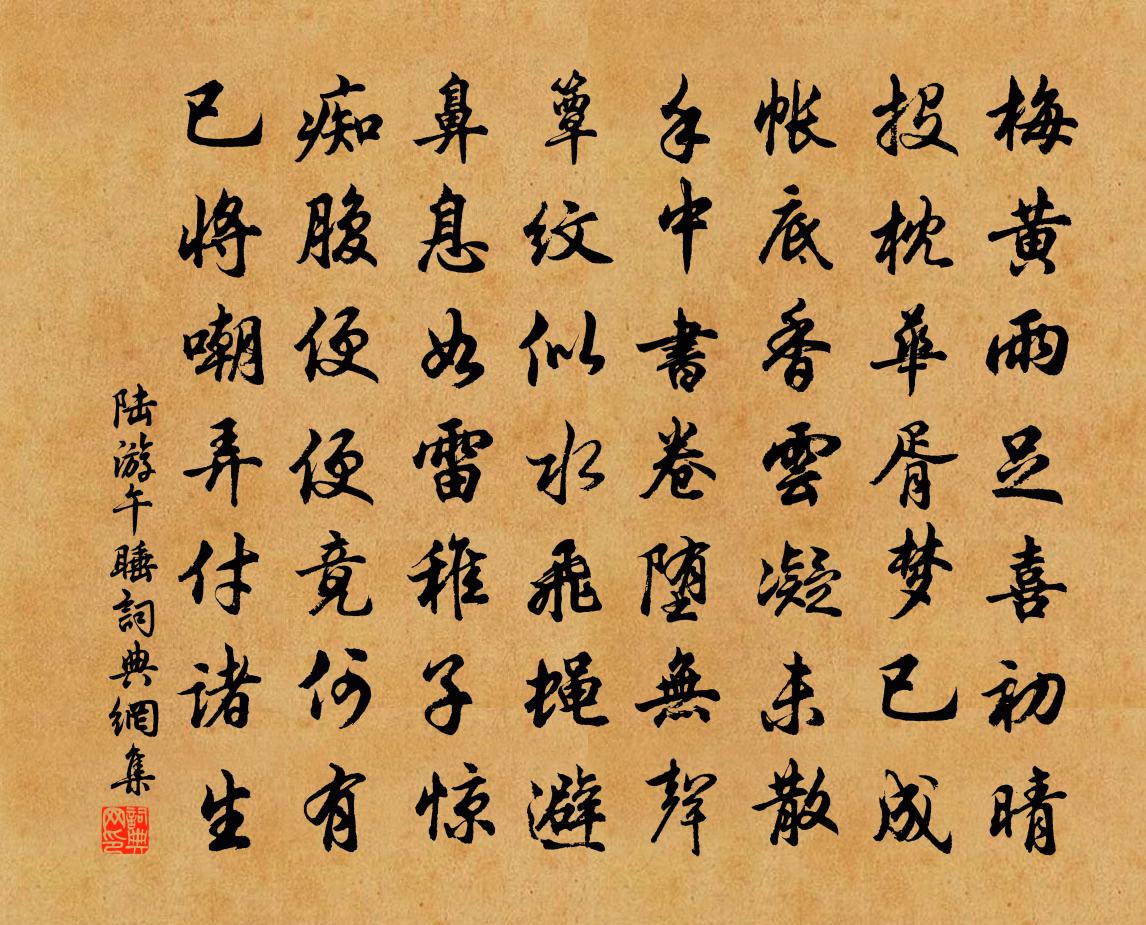 梅黄雨足喜初晴
投枕華胥梦已成
帐底香雲凝未散
手中書卷堕無聲
簟纹似水飛蝇避
鼻息如雷稚子惊
痴腹便便竟何有
已将嘲弄付诸生
陆游午睡詞典網集
詞典网印